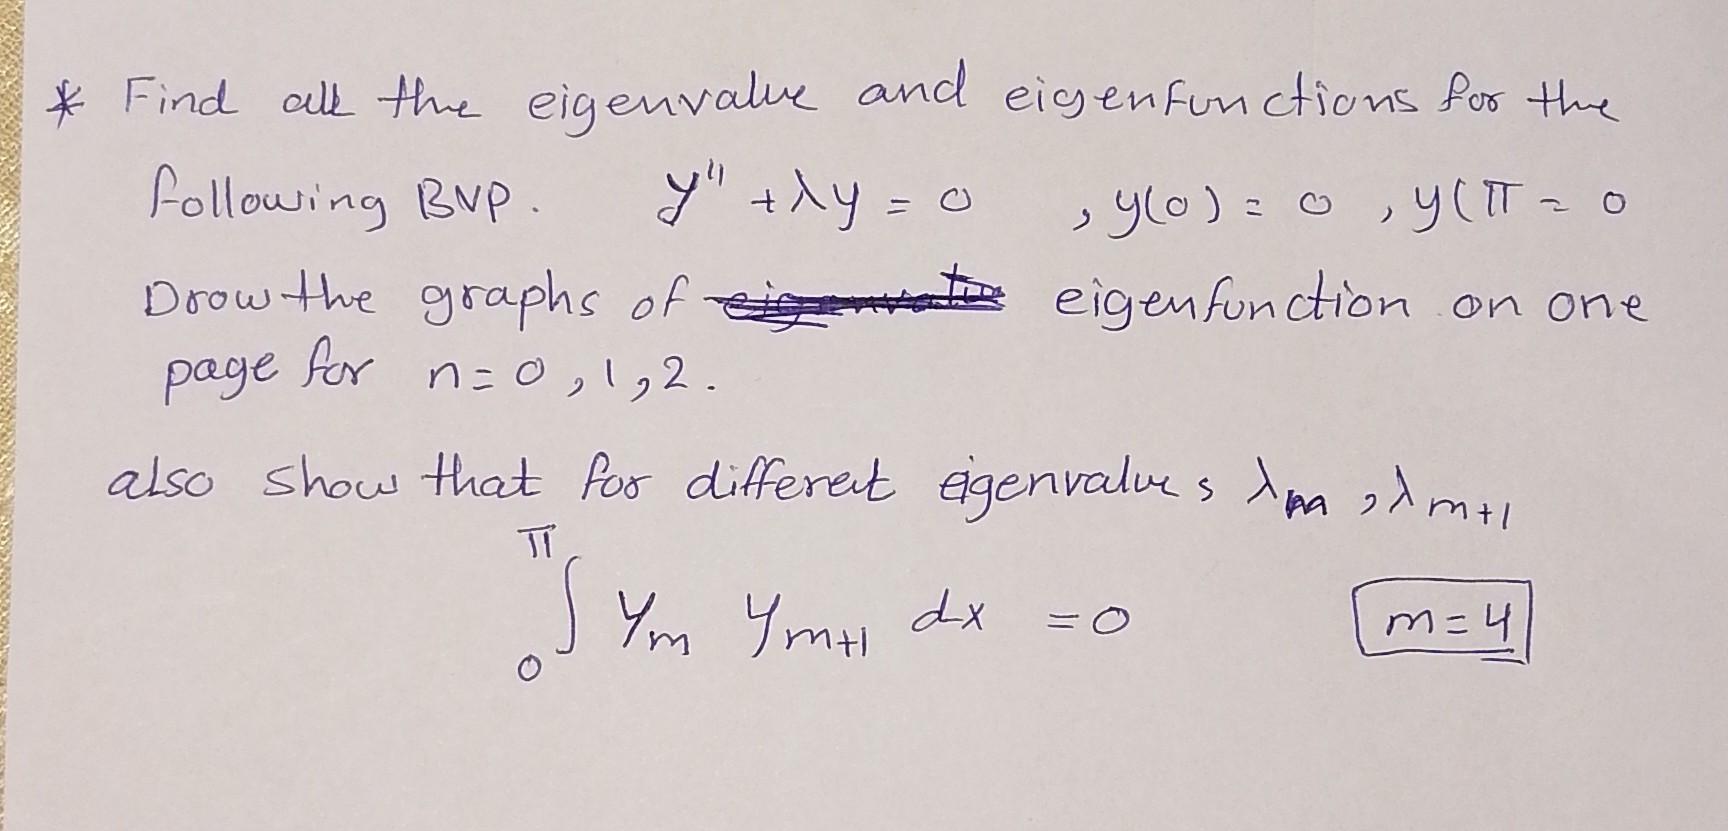 * Find all the eigenvalue and eigenfunctions for the
following BVP. y'' + λy = 0 , y(0) = 0 , y(π = 0
Drow the graphs of eigenfunction on one
page for n=0,1,2.
also show that for different eigenvalues λm , λm+1
π
∫ Ym Ym+1 dx = 0 m=4
0